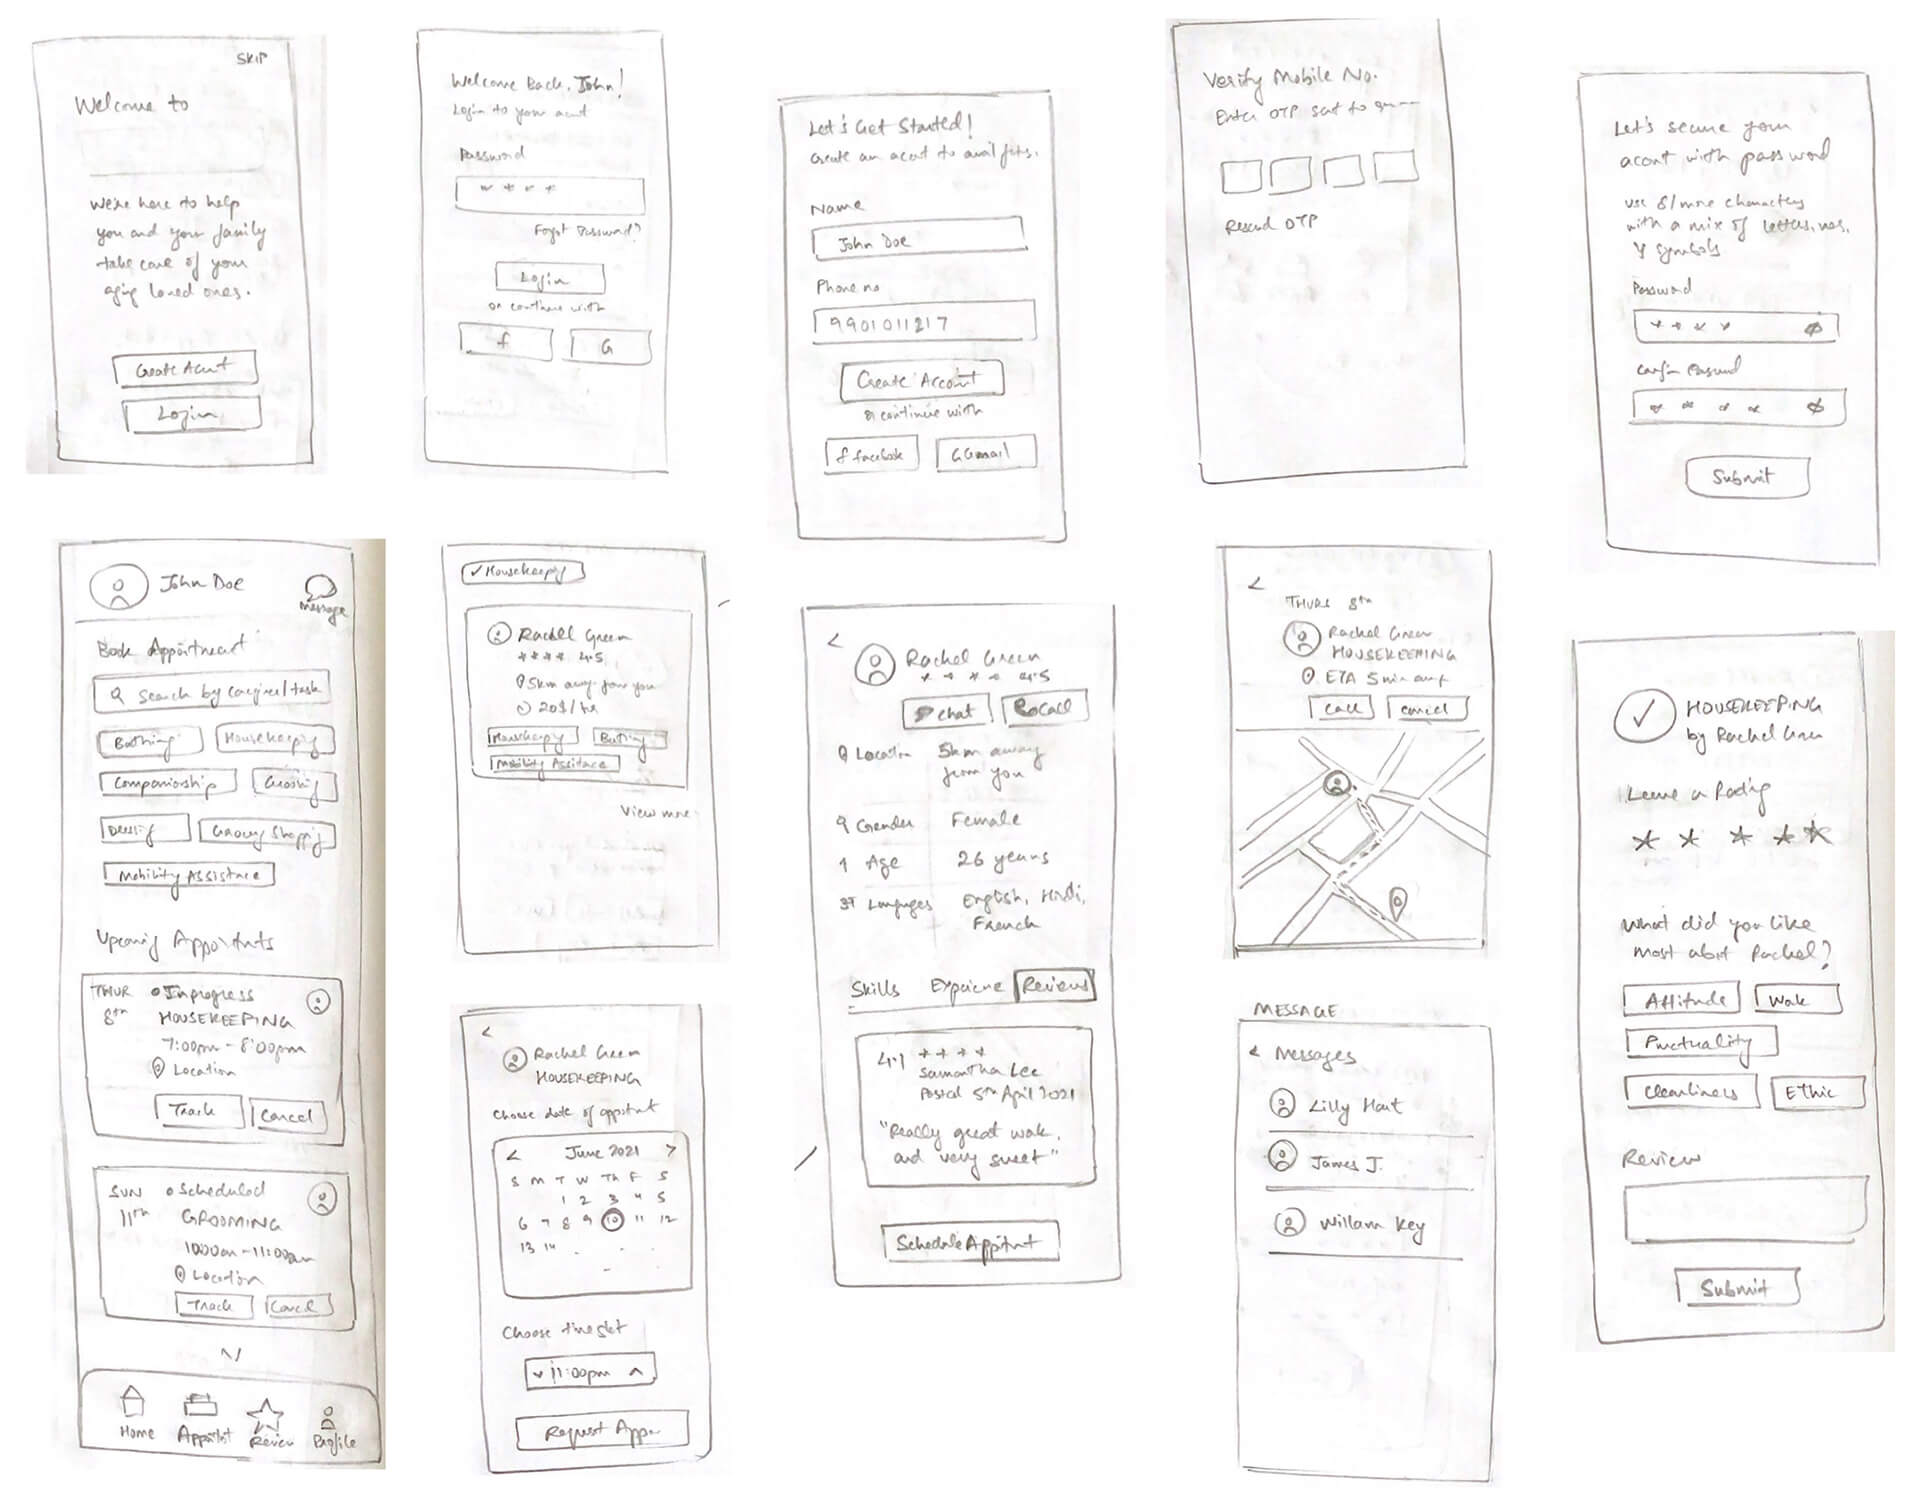 SKIP
Welcome to
We're here to help
you and your family
take care of your
aging loved ones.
Create Acunt
Login
Welcome Back, John!
Login to your acunt
Password
* * * *
Forgot Password?
Login
or continue with
f
G
Let's Get Started!
Create an acunt to avail
Name
John Doe
Phone no
9901011217
Create Account
or continue with
f facebook
G Gmail
Verify Mobile No.
Enter OTP sent to
Resend OTP
Let's secure your
acont with password
use 8/more characters
with a mix of letters, nos.
& symbols
Password
* * * *
Password
* * * *
Submit
John Doe
message
Book
Search by / task
Bathing
Housekeeping
Companionship
Grocery Shopping
Mobility Assistace
Upcoming
THUR
8th
Inprogress
HOUSEKEEPING
7:00pm - 8:00pm
Location
Track
Cancel
SUN
11th
Scheduled
GROOMING
10:00am - 11:00am
Location
Track
Cancel
Home
Review
Profile
✓ Housekeeping
Rachel Green
* * * * 4.5
5km away from you
20$/hr
Housekeeping
Bathing
Mobility Assistace
View more
<
Rachel Green
HOUSEKEEPING
Choose date of
< June 2021 >
S M T W Th F S
1 2 3 4 5
6 7 8 9 10 11 12
13 14
Choose time slot
11:00pm
Request
<
Rachel Green
* * * * 4.5
chat
call
Location
5km away
from you
Gender
Female
Age
26 years
Languages
English, Hindi,
French
Skills
Reviews
4.1 * * * *
Samantha Lee
Posted 5th April 2021
"Really great wok,
and very sweet"
Schedule
<
THURS 8th
Rachel Green
HOUSEKEEPING
ETA 5 min away
Call
Cancel
MESSAGE
< Messages
Lilly Hart
James J.
Willam Key
HOUSEKEEPING
by Rachel Green
Leave a Rating
* * * * *
What did you like
most about Rachel?
Attitude
Wok
Punctuality
Cleanliness
Ethic
Review
Submit